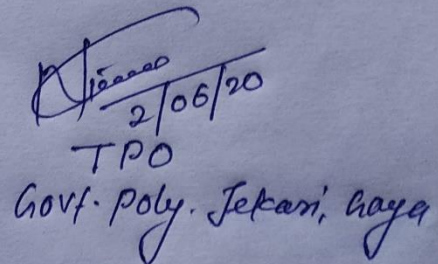 2/06/20
TPO
Govt. Poly. Tekari, Gaya